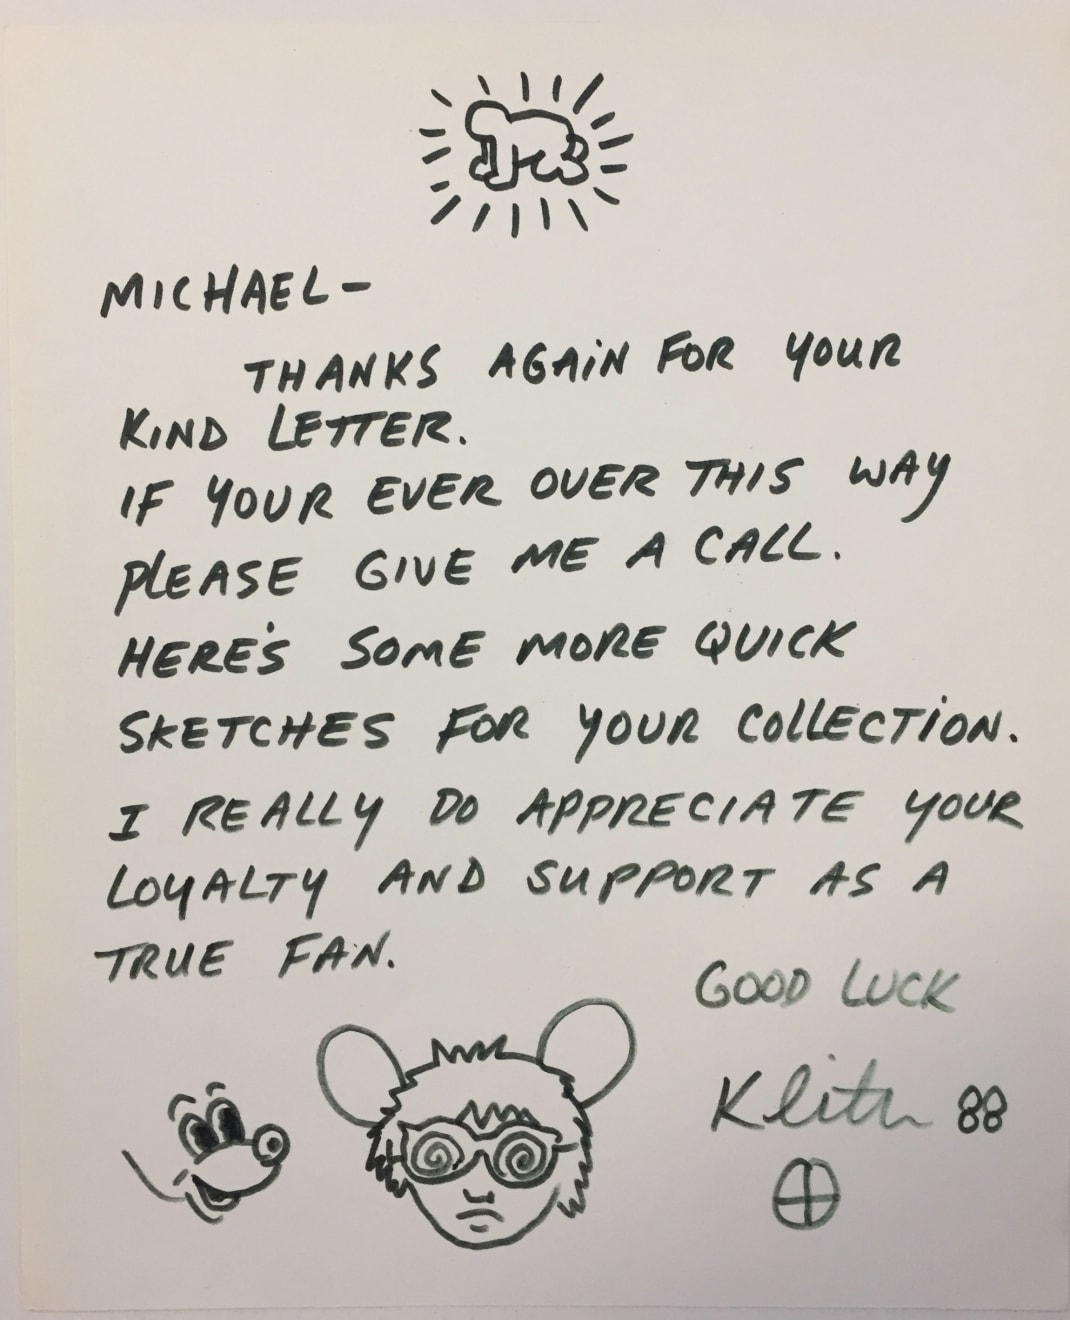 MICHAEL-
THANKS AGAIN FOR YOUR
KIND LETTER.
IF YOUR EVER OVER THIS WAY
PLEASE GIVE ME A CALL.
HERE'S SOME MORE QUICK
SKETCHES FOR YOUR COLLECTION.
I REALLY DO APPRECIATE YOUR
LOYALTY AND SUPPORT AS A
TRUE FAN.
GOOD LUCK
Keith 88